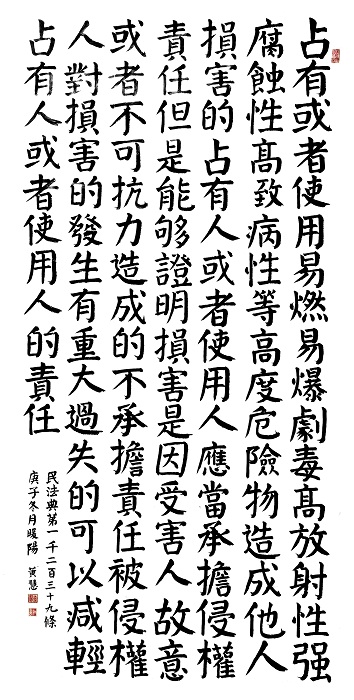 占有或者使用易燃易爆劇毒高放射性强
腐蝕性高致病性等高度危險物造成他人
損害的占有人或者使用人應當承擔侵權
責任但是能够證明損害是因受害人故意
或者不可抗力造成的不承擔責任被侵權
人對損害的發生有重大過失的可以减輕
占有人或者使用人的責任
民法典第一千二百三十九條
庚子冬月暖陽 黄慧